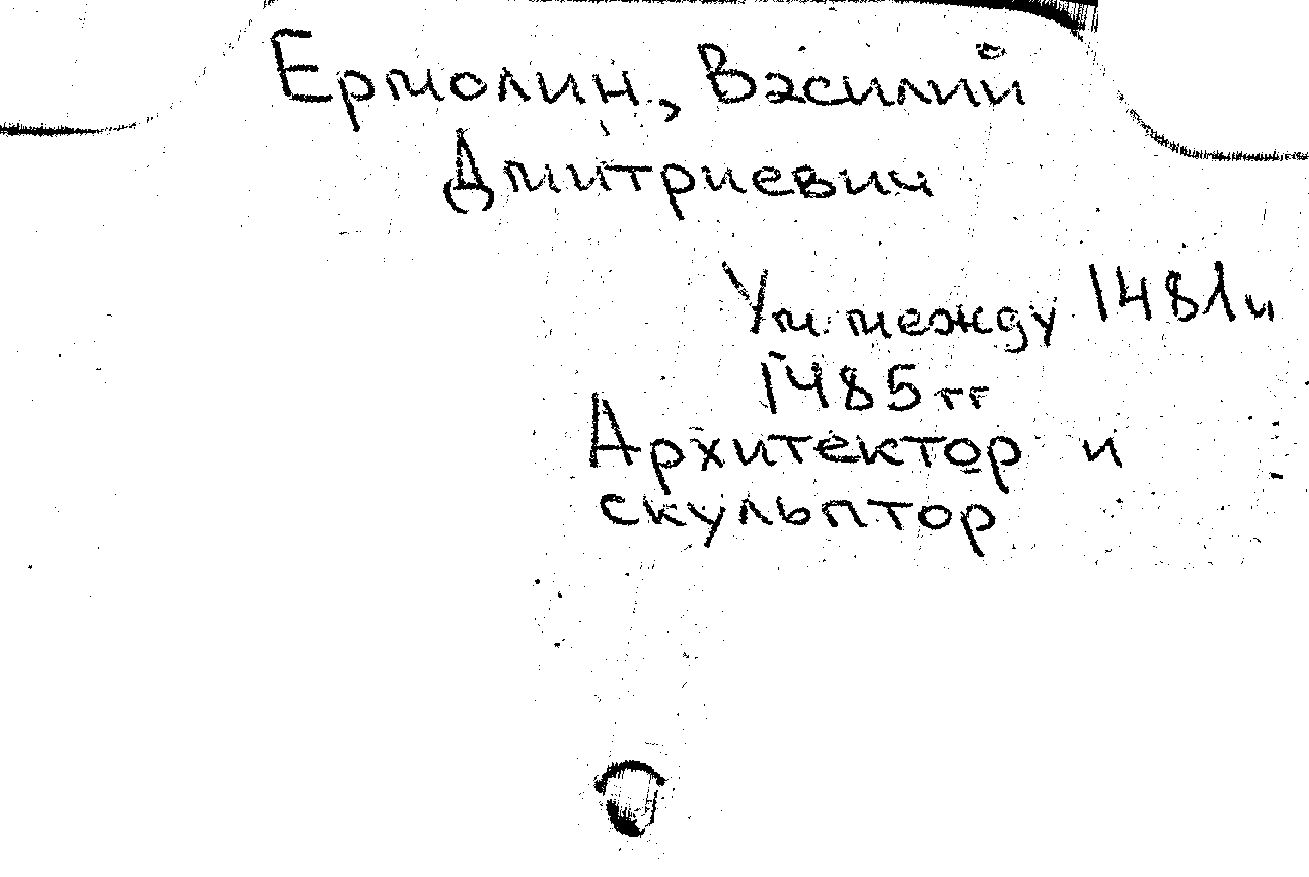 Ермолин, Василий
Дмитриевич
Ум между 1481 и
1485 гг
Архитектор и
скульптор